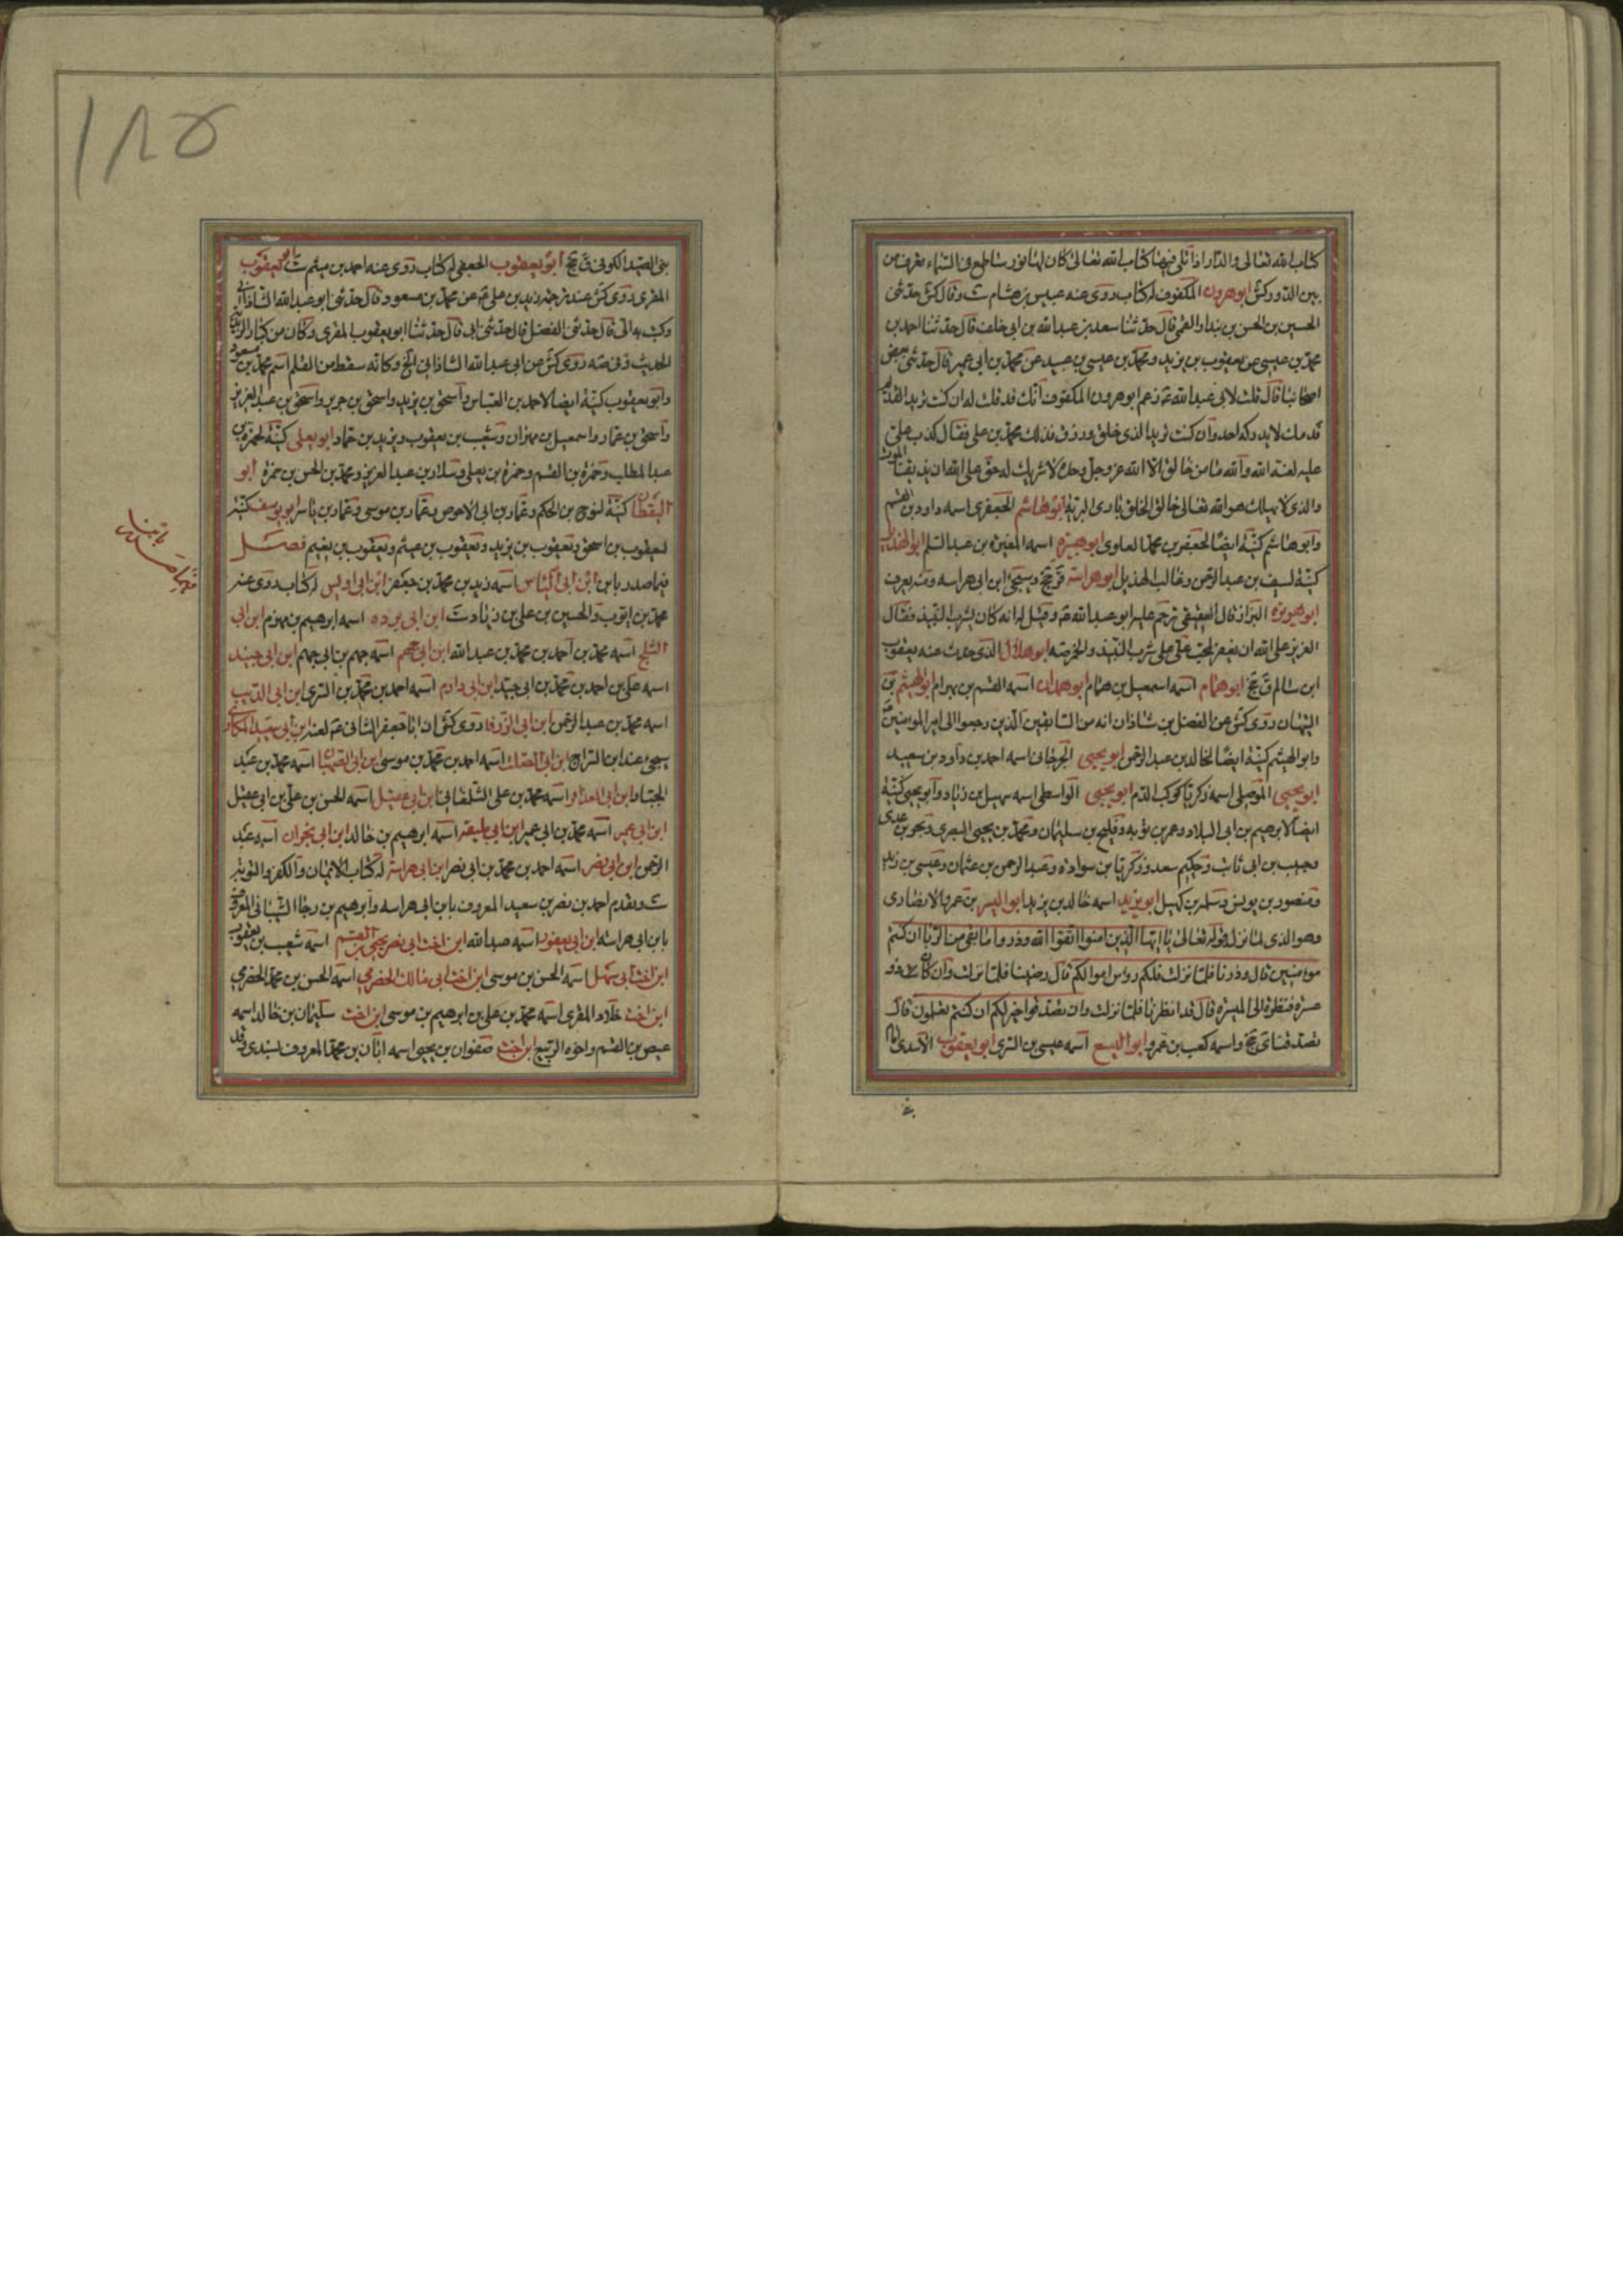 كتاب الله تعالى والدار اذا تلى فيها كتاب الله تعالى كان لها نور ساطع فى السماء يعرف من
بين الدور كش ابو هرون المكفوف له كتاب روى عنه عبيس بن هشام ست وقال كش حدثنى
الحسين بن الحسن بن بندار القمى قال حدثنا سعد بن عبدالله بن ابى خلف قال حدثنا احمد بن
محمد بن عيسى عن يعقوب بن يزيد ومحمد بن عيسى بن عبيد عن محمد بن ابى عمير قال حدثنى بعض
اصحابنا قال قلت لابى عبدالله ع زعم ابو هرون المكفوف انك قد قلت له ان كنت تريد القديم
فذلك لا يدركه احد وان كنت تريد الذى خلق ورزق فذلك محمد بن على فقال كذب على
عليه لعنة الله والله ما من خالق الا الله عز وجل وحده لا شريك له حق على الله ان يذيقنا الموت
والذى لا يهلك هو الله تعالى خالق الخلق بارئ البرية ابو هاشم الجعفرى اسمه داود بن القسم
وابو هاشم كنية ايضا لجعفر بن محمد العلوى ابو هبيرة اسمه المغيرة بن عبد السلم ابو الهذيل
كنية لسيف بن عبد الرحمن وغالب الهذيل ابو هراسة ق جخ وسيجئ ابن ابى هراسه وممن يعرف
ابو هريرة البزاز قال العقيقى ترحم عليه ابو عبدالله ع وقيل له انه كان يشرب النبيذ فقال
العزيز على الله ان يغفر لمحب على على شرب النبيذ والخمر صه ابو هلال الذى حدث عنه يعقوب
ابن سالم ق جخ ابو همام اسمه اسمعيل بن همام ابو همدان اسمه القسم بن بهرام ابو الهيثم بن
التيهان روى كش عن الفضل بن شاذان انه من السابقين الذين رجعوا الى امير المومنين ع
وابو الهيثم كنية ايضا لخالد بن عبد الرحمن ابو يحيى الجرجانى اسمه احمد بن داود بن سعيد
ابو يحيى الموصلى اسمه زكريا كوكب الدم ابو يحيى الواسطى اسمه سهيل بن زياد وابو يحيى كنية
ايضا لابرهيم بن ابى البلاد وعمر بن توبه وفليح بن سليمان ومحمد بن يحيى البصرى عدى
وحبيب بن ابى ثابت وحكيم سعد وزكريا بن سوادة وعبد الرحمن بن عثمان وعيسى بن
ومنصور بن يونس وسلمة بن كهيل ابو يزيد اسمه خالد بن يزيد ابو اليسر بن عمرو الانصارى
وهو الذى لما نزل قوله تعالى يا ايها الذين امنوا اتقوا الله وذروا ما بقى من الربا ان كنتم
مومنين قال وذرنا فلما نزلت فلكم رؤس اموالكم قال رضينا فلما نزلت وان كان ذو
عسرة فنظرة الى الميسرة قال قد انظرنا فلما نزلت وان تصدقوا خير لكم ان كنتم تعلمون قال
تصدقنا جخ واسمه كعب بن عمرو ابو اليسع اسمه عيسى بن السرى ابو يعقوب الاسدى
بنى
١٨٥
بنى الصيدا الكوفى ق جخ ابو يعقوب الجعفى له كتاب روى عنه احمد بن ميثم ست ابو يعقوب
المقرى روى كش عند ترجمة زيد بن على ع عن محمد بن مسعود قال حدثنى ابو عبدالله الشاذانى
وكتب به الى قال حدثنى الفضل قال حدثنى ابى قال حدثنا ابو يعقوب المقرى وكان من كبار الزيدية
الحديث وفى صه روى كش عن ابى عبدالله الشاذانى الخ وكانه سقط من القلم اسم محمد بن مسعود
وابو يعقوب كنية ايضا لاحمد بن العباس واسحق بن يزيد واسحق بن جرير واسحق بن عبد العزيز
واسحق بن عمار واسمعيل بن مهران وشعيب بن يعقوب ويزيد بن حماد ابو يعلى كنية لحمزة بن
عبد المطلب وحمزة بن القسم وحمزة بن يعلى وسلار بن عبد العزيز ومحمد بن الحسن بن حمزة ابو
اليقظان كنية لنوح بن الحكم وعمار بن ابى الاحوص وعمار بن موسى وعمار بن ياسر ابو يوسف كنية
ليعقوب بن اسحق ويعقوب بن يزيد ويعقوب بن عيثم ويعقوب بن نعيم فصل
فيما صدر بابن ابن ابى الياس اسمه زيد بن محمد بن جعفر ابن ابى اويس له كتاب روى عنه
محمد بن ايوب والحسين بن على بن زياد ست ابن ابى برده اسمه ابرهيم بن مهزم ابن ابى
الثلج اسمه محمد بن احمد بن محمد بن عبدالله ابن ابى جهم اسمه جهم بن ابى جهم ابن ابى جيد
اسمه على بن احمد بن محمد بن ابى جيد ابن ابى دارم اسمه احمد بن محمد بن السرى ابن ابى الذيب
اسمه محمد بن عبد الرحمن ابن ابى الزرقا روى كش ان ابا جعفر الثانى ع لعنه ابن ابى سعيد المكارى
يجئ عند ابن السراج ابن ابى الصلت اسمه احمد بن محمد بن موسى ابن ابى الصهبان اسمه محمد بن عبد
الجبار ابن ابى العذافر اسمه محمد بن على الشلغانى ابن ابى عقيل اسمه الحسن بن على بن ابى عقيل
ابن ابى عمير اسمه محمد بن ابى عمير ابن ابى مليقه اسمه ابرهيم بن خالد ابن ابى نجران اسمه عبد
الرحمن ابن ابى نصر اسمه احمد بن محمد بن ابى نصر ابن ابى هراسة له كتاب الايمان والكفر والتوبة
ست وتقدم احمد بن نصر بن سعيد المعروف بابن ابى هراسه وابرهيم بن رجا الشيبانى المعروف
بابن ابى هراسه ابن ابى يعفور اسمه عبدالله ابن اخت ابى نصر يحيى بن القسم اسمه شعيب بن يعقوب
ابن اخت ابى سهل اسمه الحسن بن موسى ابن اخت ابى مالك الحضرمى اسمه الحسن بن محمد الحضرمى
ابن اخت خلاد المقرى اسمه محمد بن على بن ابرهيم بن موسى ابن اخت سليمان بن خالد اسمه
عيص بن القسم واخوه الربيع ابن اخت صفوان بن يحيى اسمه ابان بن محمد المعروف بسندى